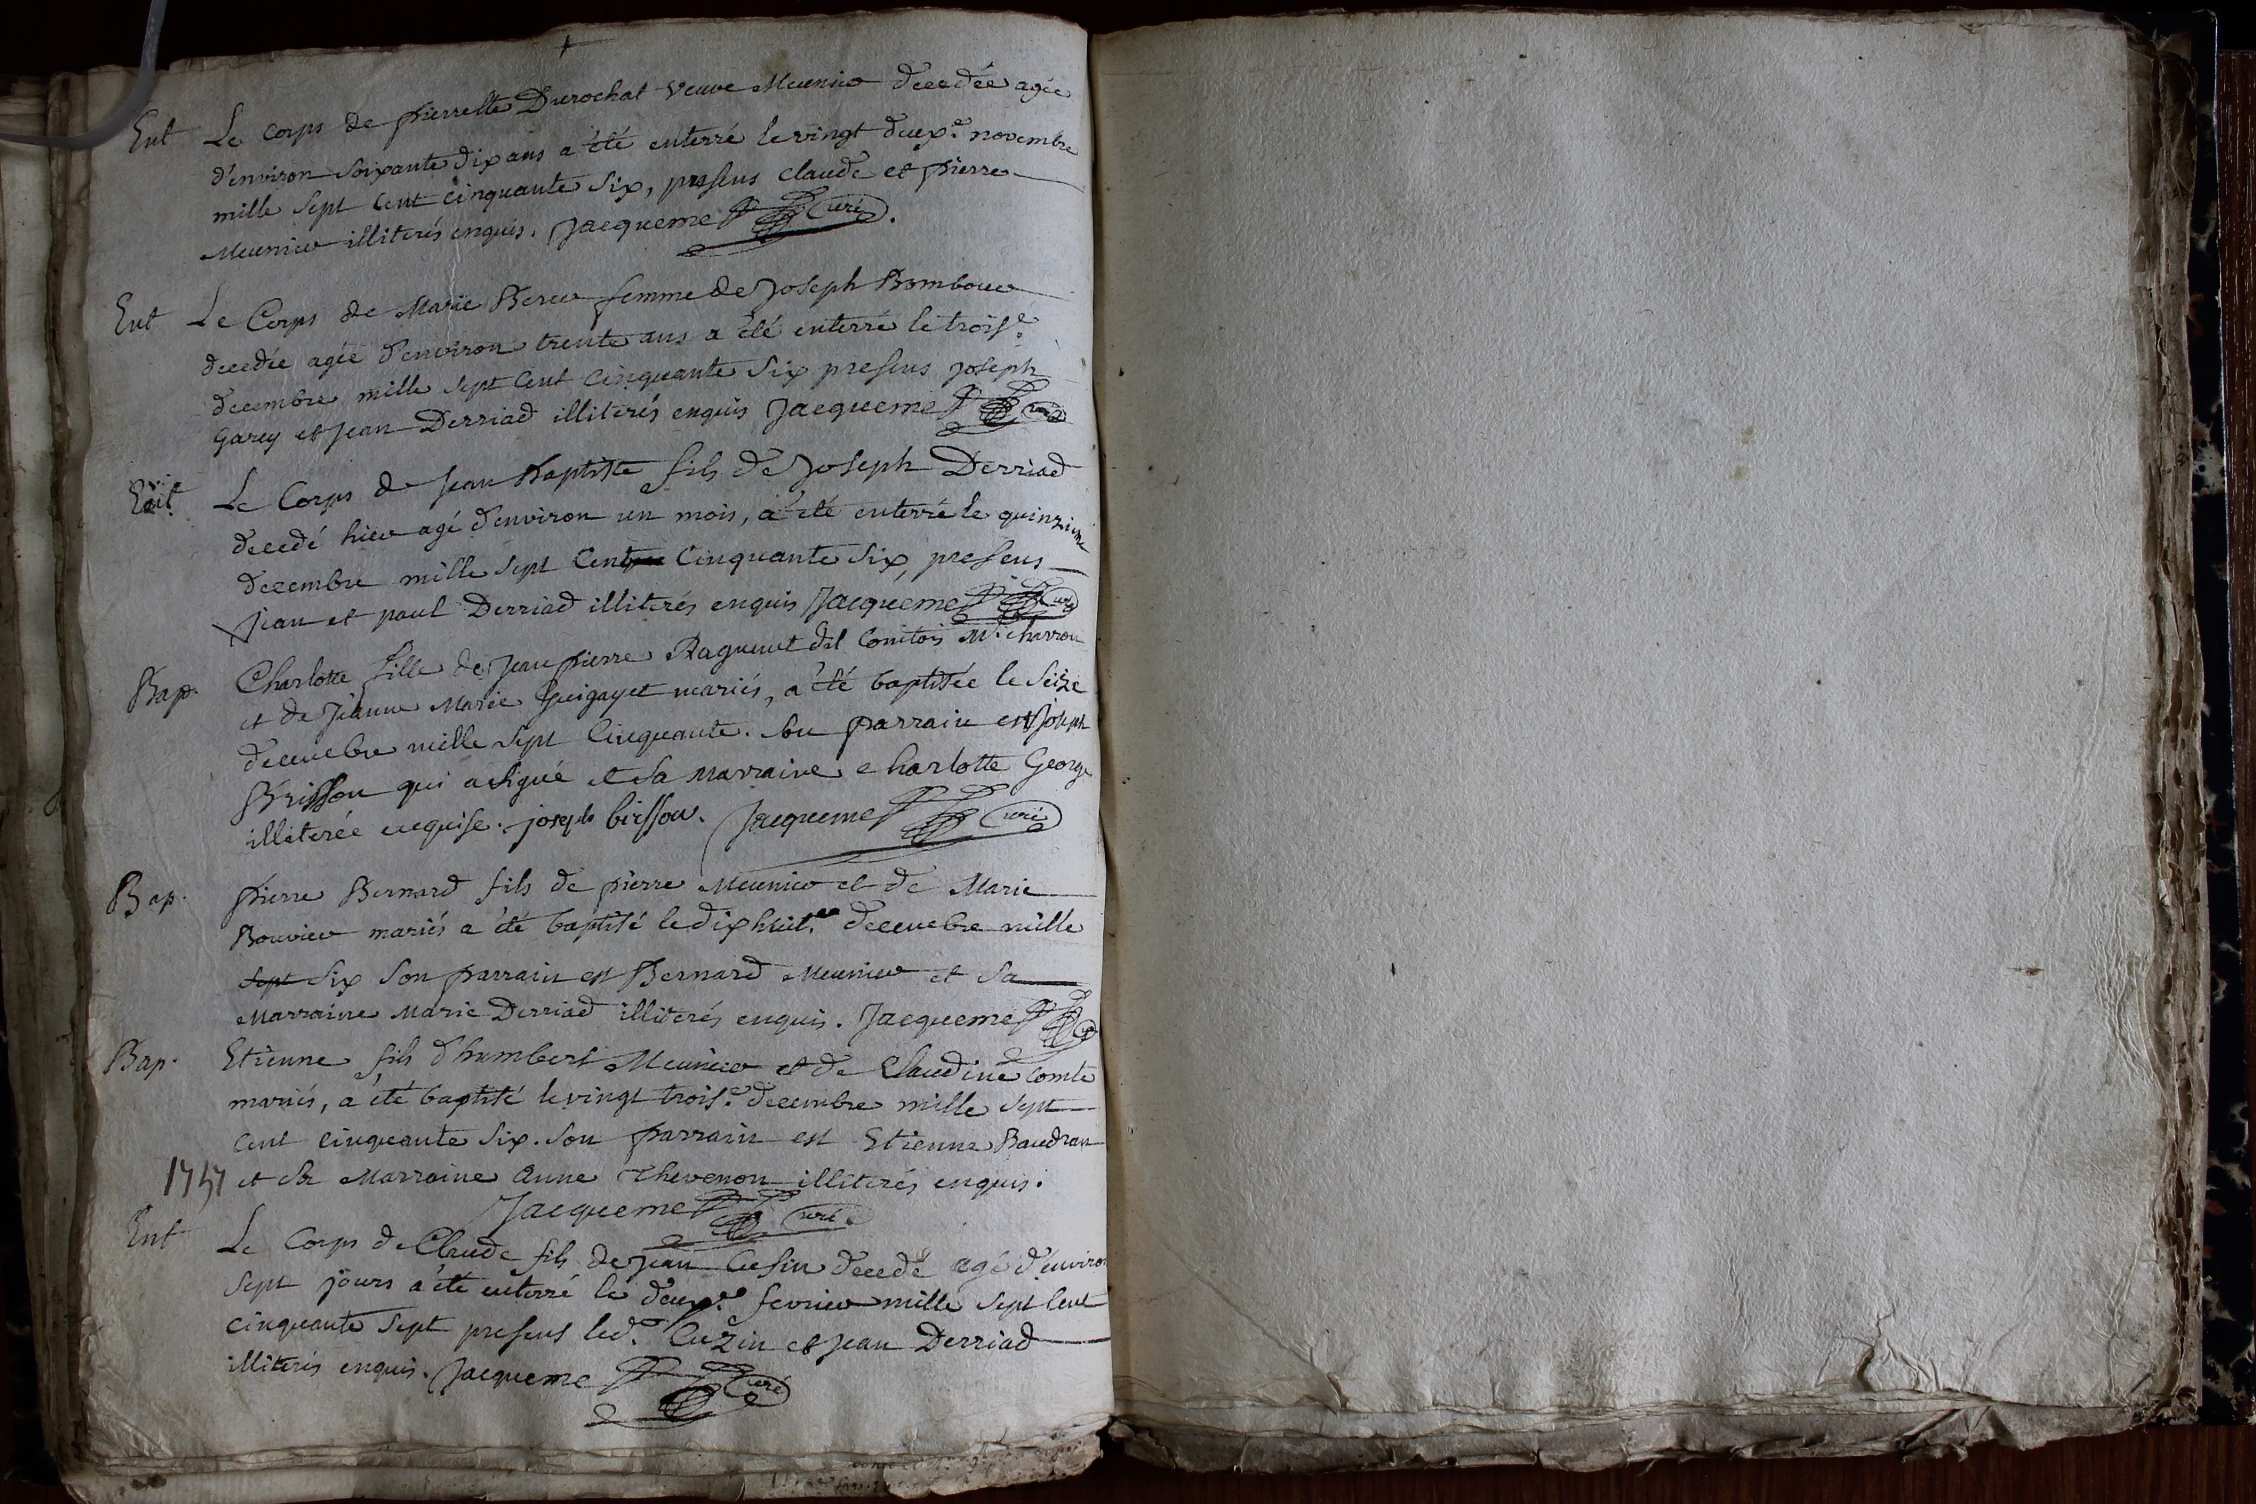 Ent Le Corps de pierrette Durochat veuve Meunier decedée agée
d'environ soixante dix ans a été enterré le vingt deuxe. novembre
mille sept cent cinquante six, presens claude et pierre
Meunier illiterés enquis. Jacqueme curé.
Ent Le Corps de Marie Berer femme de Joseph Bombouer
decedée agée d'environ trente ans a été enterré le troise.
decembre mille sept cent cinquante six presens joseph
Garey et jean Derriad illiterés enquis Jacqueme curé
Ent Le Corps de jean Baptiste fils de Joseph Derriad
decedé hier agé d'environ un mois, a été enterré le quinzieme
decembre mille sept cent cinquante six, presens
jean et paul Derriad illiterés enquis Jacqueme curé
Bap. Charlotte fille de jean pierre Raguenet dit Comtois Me. charron
et de jeanne Marie Guigayet mariés, a été baptisée le seize
decembre mille sept cinquante. son parrain est joseph
Brisson qui a signé et sa marraine charlotte George
illiterée enquise. joseph birsson. Jacqueme curé
Bap. pierre Bernard fils de pierre Meunier et de Marie
Bouvier mariés a été baptisé le dix huite. decembre mille
sept six son parrain est Bernard Meunier et sa
Marraine Marie Derriad illiterés enquis. Jacqueme curé
Bap. Etienne fils d'humbert Meunier et de Claudine comte
mariés, a été baptisé le vingt troise. decembre mille sept
cent cinquante six. son parrain est Etienne Baudran
1757 et sa Marraine anne Thevenon illiterés enquis.
Jacqueme curé
Ent Le Corps de Claude fils de jean Cusin decedé agé d'environ
sept jours a été enterré le deuxe. fevrier mille sept cent
cinquante sept presens led. Cuzin et jean Derriad
illiterés enquis. Jacqueme curé